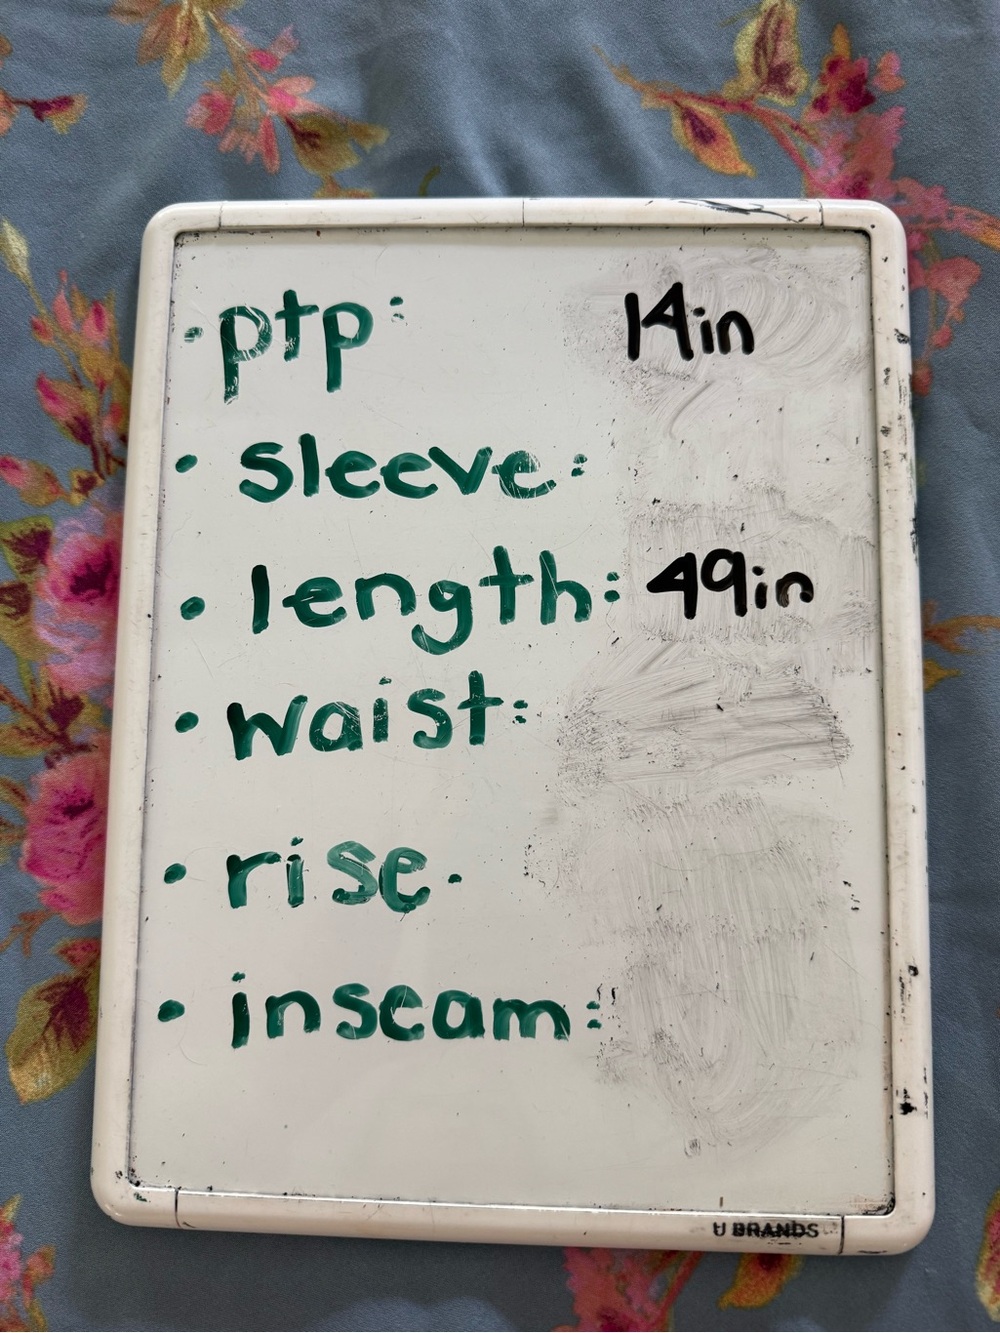 • ptp: 14in
• sleeve:
• length: 49in
• waist:
• rise.
• inseam:
U BRANDS